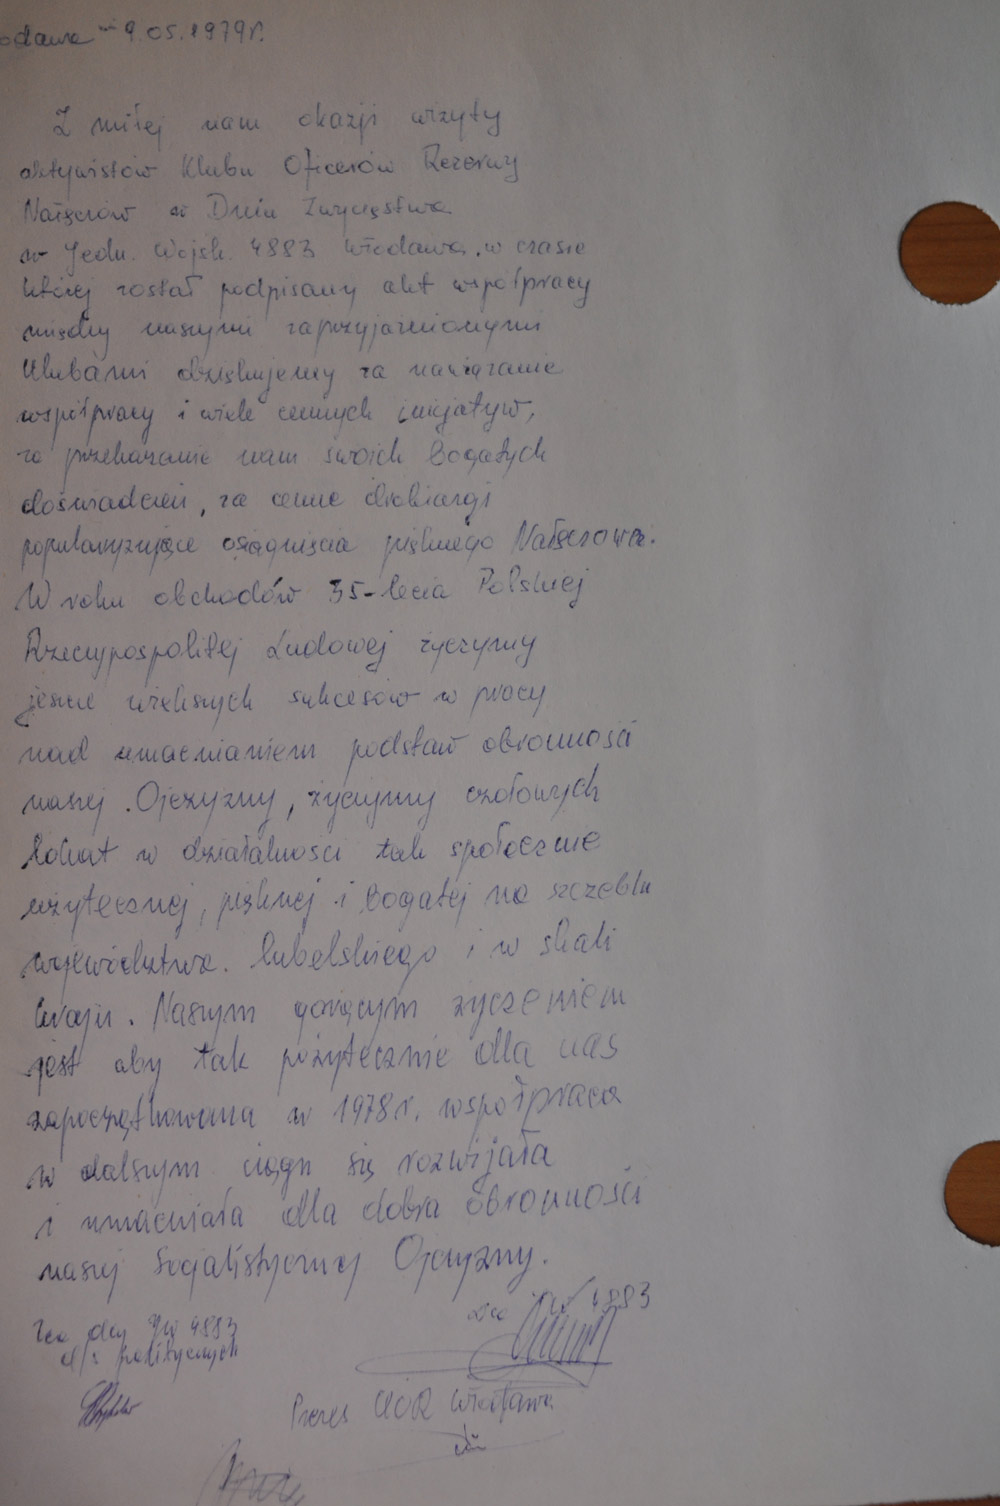 odawa 9.05.1979r.
Z miłej nam okazji wizyty
aktywistów Klubu Oficerów Rezerwy
Nałęczów w Dniu Zwycięstwa
w Jedn. Wojsk. 4883 Włodawa, w czasie
której został podpisany akt współpracy
między naszymi zaprzyjaźnionymi
Klubami dziękujemy za nawiązanie
współpracy i wiele cennych inicjatyw,
za przekazanie nam swoich bogatych
doświadczeń, za cenne drobiazgi
popularyzujące osiągnięcia pięknego Nałęczowa.
W roku obchodów 35-lecia Polskiej
Rzeczypospolitej Ludowej życzymy
jeszcze większych sukcesów w pracy
nad umacnianiem podstaw obronności
naszej Ojczyzny, życzymy czołowych
lokat w działalności tak społecznie
użytecznej, pięknej i bogatej na szczeblu
województwa lubelskiego i w skali
kraju. Naszym gorącym życzeniem
jest aby tak pożytecznie dla nas
zapoczątkowana w 1978 r. współpraca
w dalszym ciągu się rozwijała
i umacniała dla dobra obronności
naszej Socjalistycznej Ojczyzny.
Dca JW 4883
Zca dcy JW 4883
d/s politycznych
Prezes KOR Włodawa